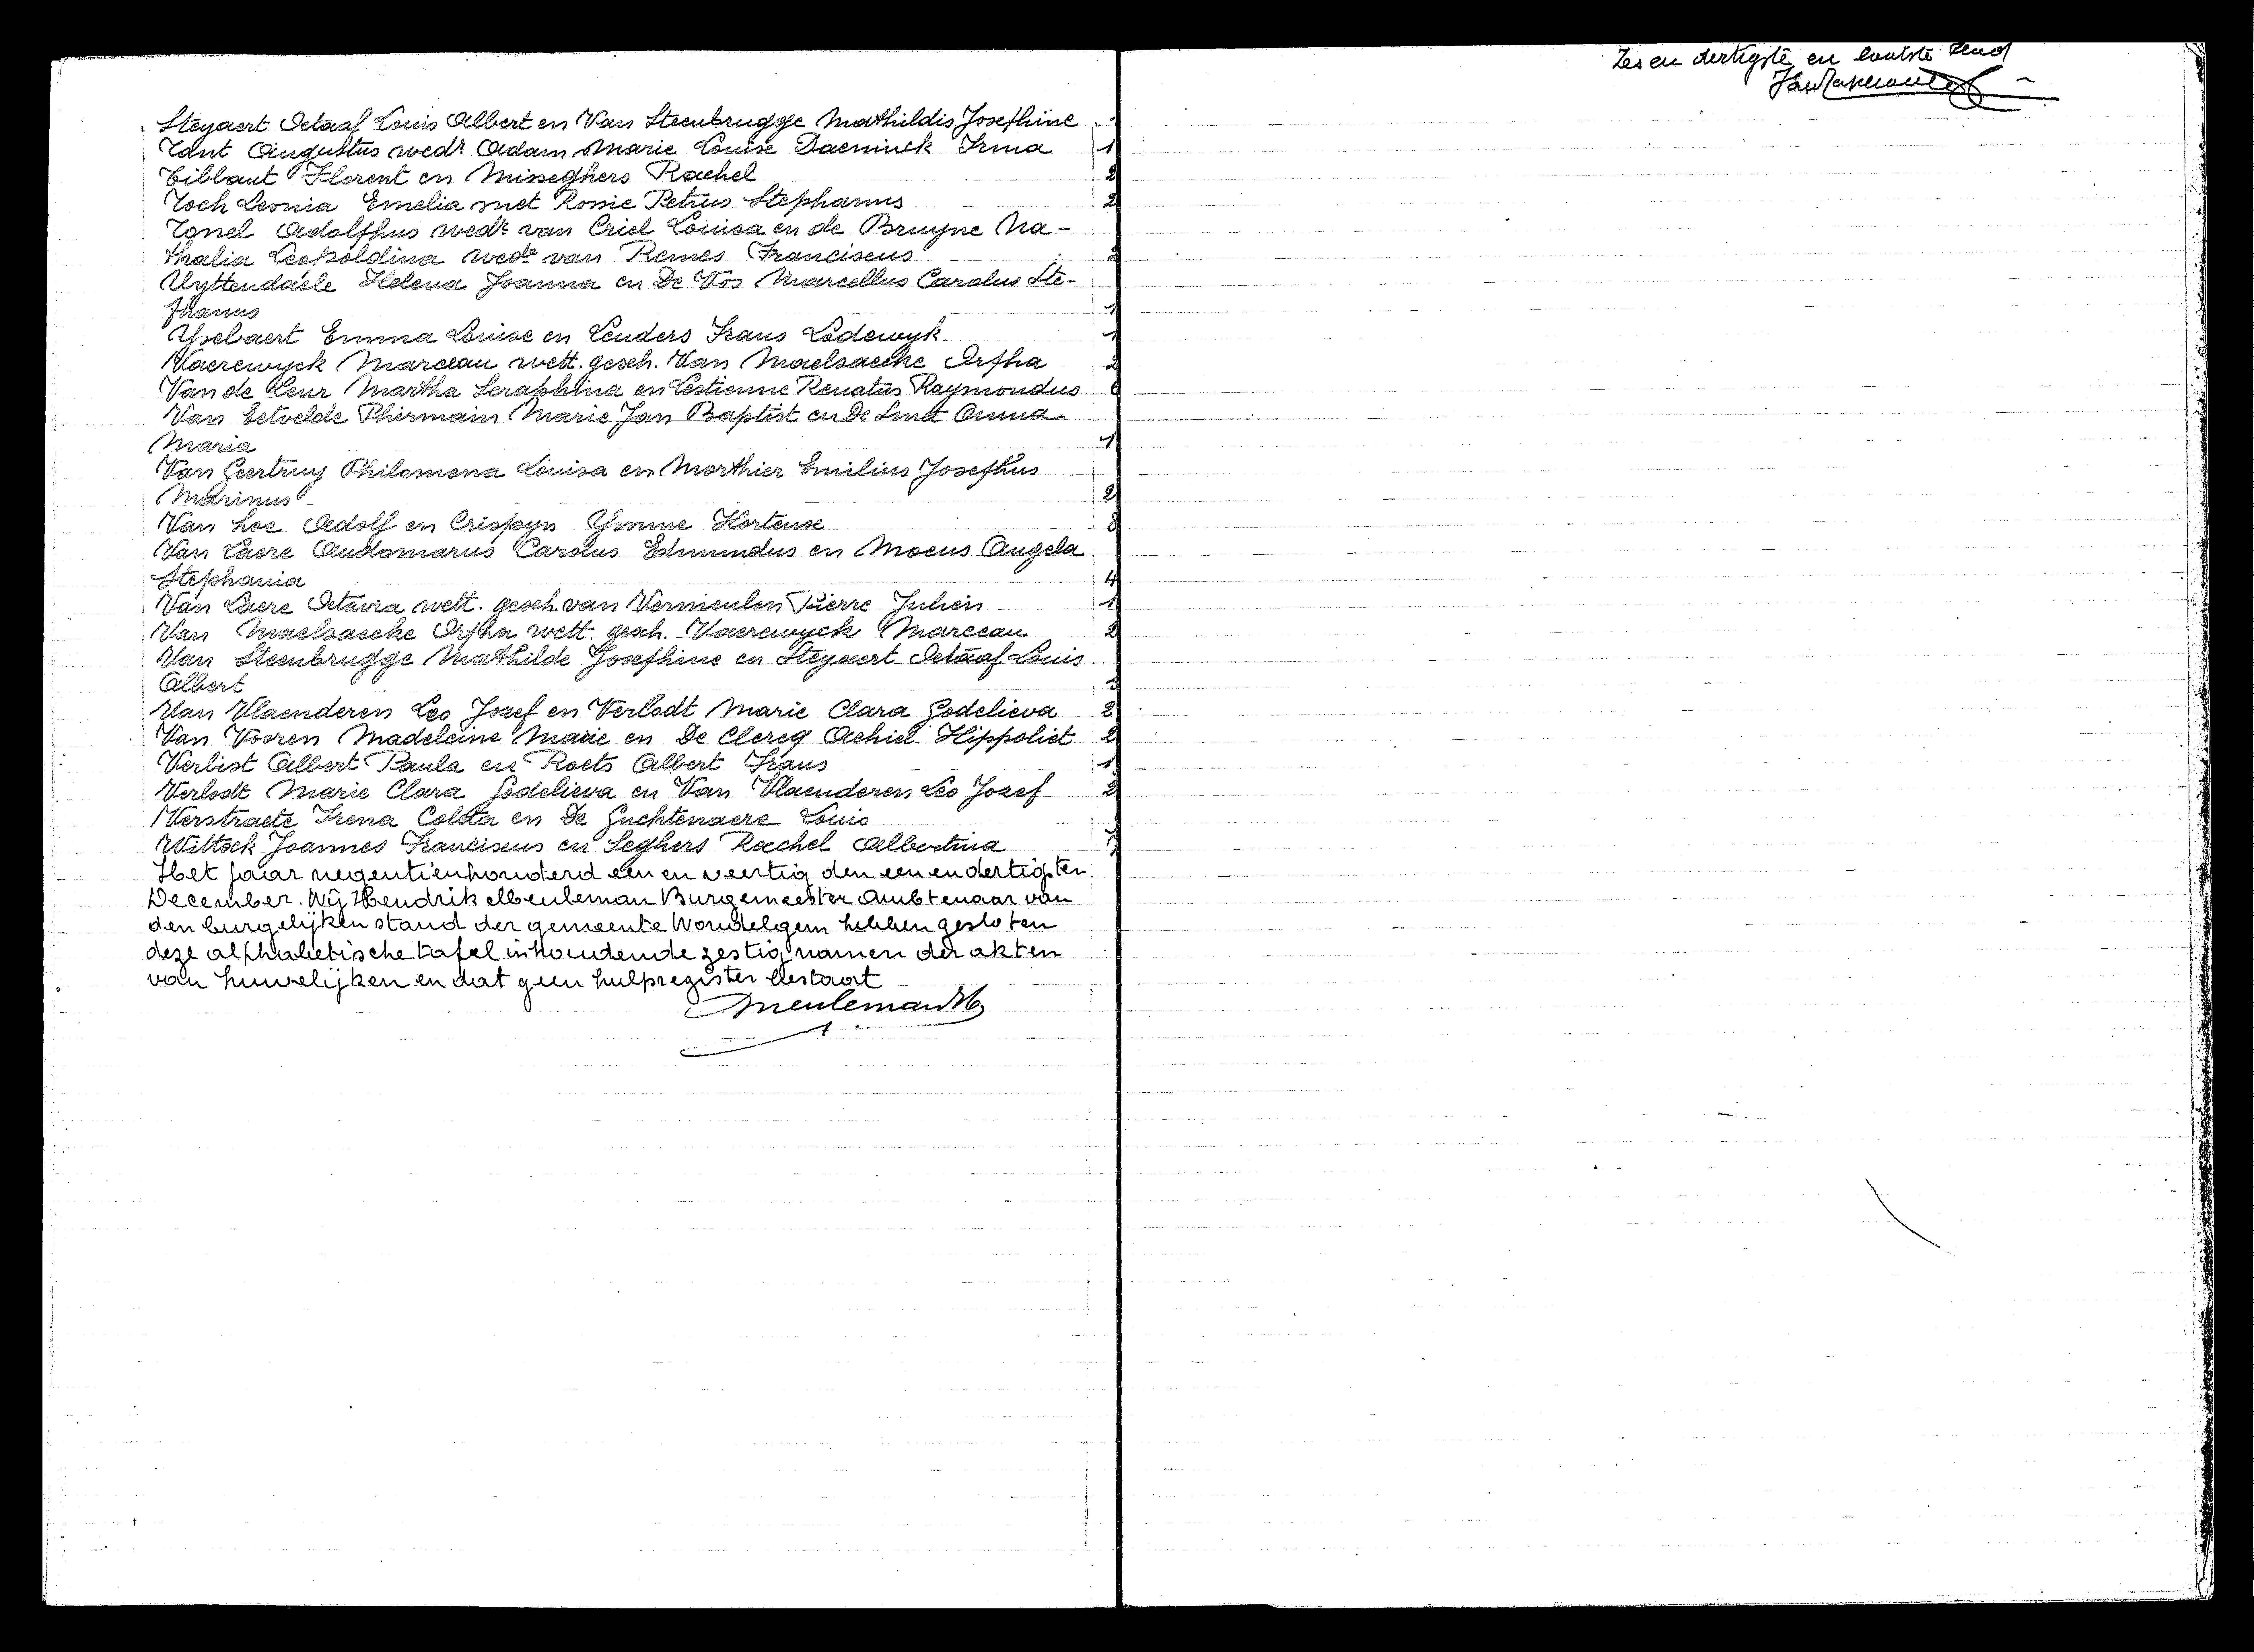 Steyaert Octaaf Louis Albert en Van Steenbrugge Mathildis Josephine
Tant Augustus wedr Adam Marie Louise Daeninck Irma 1
Tiblaut Florent en Misseghers Rachel 2
Toch Leonia Emelia met Rosie Petrus Stephanus 2
Tonel Adolfhus wedr van Criel Louisa en de Bruyne Na-
thalia Leopoldina wede van Remes Franciscus 2
Uyttendaele Helena Joanna en De Vos Marcellus Carolus Ste-
phanus 1
Ysebaert Emma Louise en Lenders Frans Lodewyk 1
Vaerewyck Marceau wett. gesch. Van Maelsaecke Orpha 2
Van de Keur Martha Seraphina en Lestienne Renatus Raymondus
Van Eetvelde Phirmain Marie Jan Baptist en De Smet Anna
Maria 1
Van Geertruy Philomena Louisa en Morthier Emilius Josephus
Marinus 2
Van Loc Adolf en Crispyn Yvonne Hortense
Van Laere Audomarus Carolus Edmundus en Moens Angela
Stephania 4
Van Laere Octavia wett. gesch. van Vermeulen Pierre Julien 1
Van Maelsaecke Orpha wett. gesch. Vaerewyck Marceau 2
Van Steenbrugge Mathilde Josephine en Steyaert Octaaf Louis
Albert
Van Vlaenderen Leo Jozef en Verlodt Marie Clara Godelieva 2
Van Vooren Madeleine Marie en De Clercq Achiel Hippoliet 2
Verbist Albert Paula en Roets Albert Frans 1
Verlodt Marie Clara Godelieva en Van Vlaenderen Leo Jozef 2
Verstraete Irena Coleta en De Guchtenaere Louis
Wittock Joannes Franciscus en Seghers Rachel Albertina
Het jaar negentienhonderd een en veertig den een en dertigsten
December. Wij Hendrik Meuleman Burgemeester Ambtenaar van
den burgelijken stand der gemeente Wondelgem hebben gesloten
deze alphabetische tafel inhoudende zestig namen der akten
van huwelijken en dat geen hulpregister bestaat
Meuleman H
Zes en dertigste en laatste blad